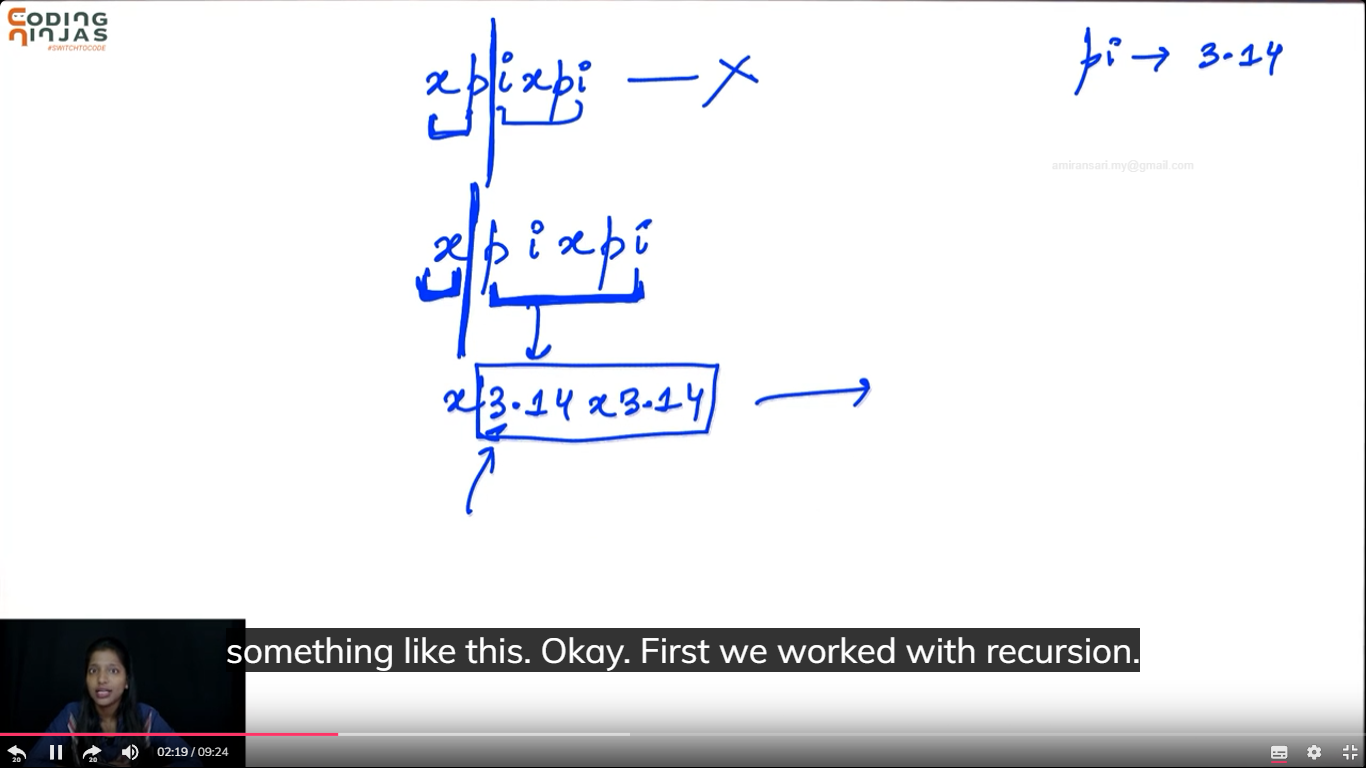 CODING
NINJAS
#SWITCHTOCODE
xpixpi — X
pi → 3.14
amiransari.my@gmail.com
x pixpi
x 3.14x3.14 →
something like this. Okay. First we worked with recursion.
20
20
02:19 / 09:24